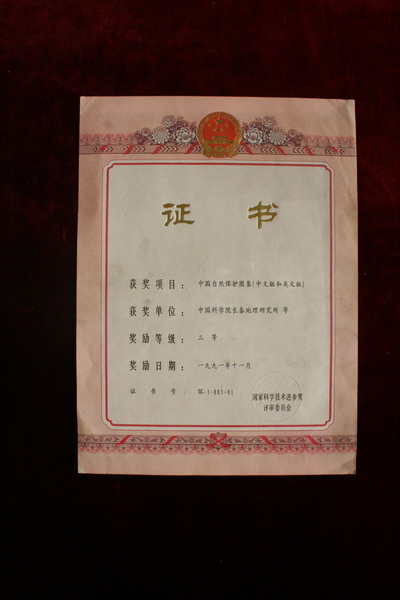 证书
获奖项目： 中国自然保护图集(中文版和英文版)
获奖单位： 中国科学院长春地理研究所 等
奖励等级： 三 等
奖励日期： 一九九一年十一月
证 书 号：
国家科学技术进步奖
评审委员会